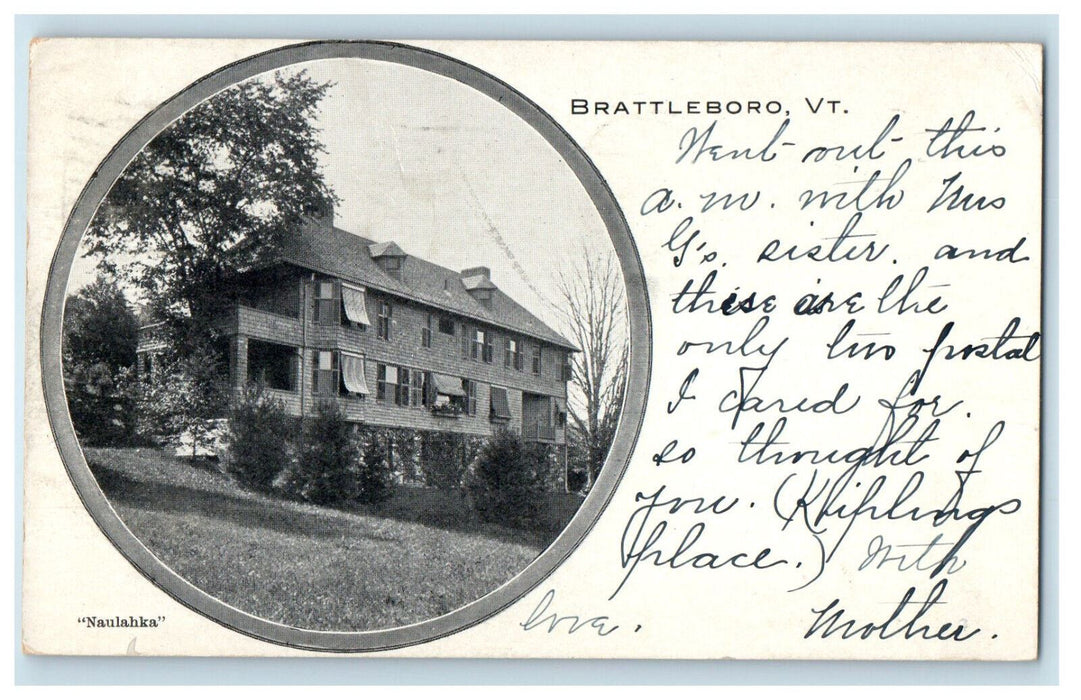 BRATTLEBORO, VT.
Went out this
a.m. with Mrs
G's. sister. and
these are the
only two postal
I cared for.
so thought of
you. (Kiplings
place.) With
love.
Mother.
"Naulahka"